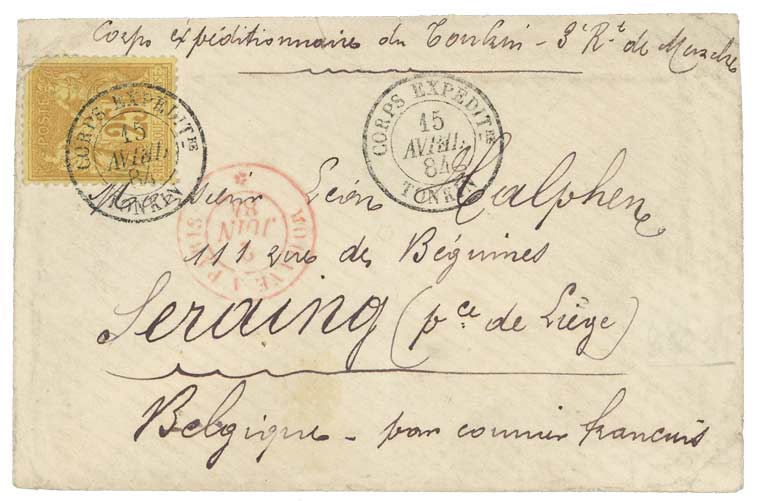 Corps expéditionnaire du Tonkin - 3e Rt de Marche
POSTES
25
CORPS EXPEDITRE
15
AVRIL
84
TONKIN
CORPS EXPEDITRE
15
AVRIL
84
TONKIN
Monsieur Léon Halphen
MODANE A PARIS
2
JUIN
84
111 rue des Béguines
Seraing (pce de Liège)
Belgique - par courrier français